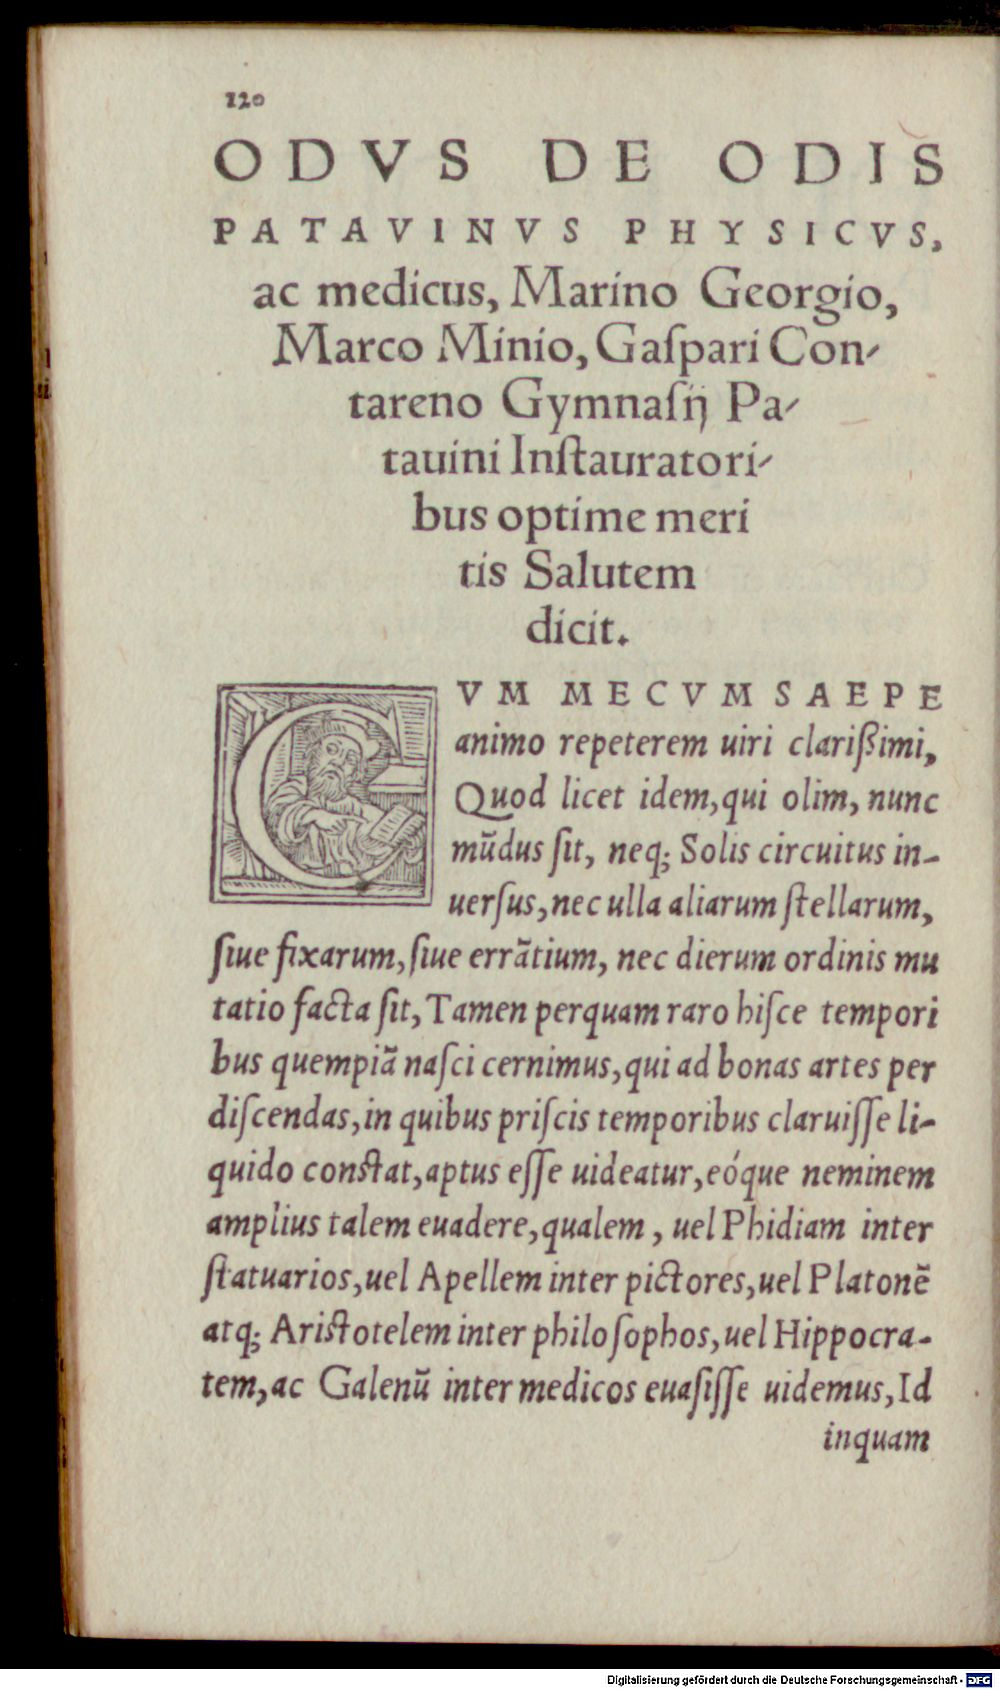 120
ODVS DE ODIS
PATAVINVS PHYSICVS,
ac medicus, Marino Georgio,
Marco Minio, Gaſpari Con-
tareno Gymnaſij Pa-
tauini Inſtauratori-
bus optime meri
tis Salutem
dicit.
CVM MECVM SAEPE
animo repeterem uiri clarißimi,
Quod licet idem, qui olim, nunc
mũdus ſit, neq; Solis circuitus in-
uerſus, nec ulla aliarum ſtellarum,
ſiue fixarum, ſiue errãtium, nec dierum ordinis mu
tatio facta ſit, Tamen perquam raro hiſce tempori
bus quempiã naſci cernimus, qui ad bonas artes per
diſcendas, in quibus priſcis temporibus claruiſſe li-
quido conſtat, aptus eſſe uideatur, eóque neminem
amplius talem euadere, qualem, uel Phidiam inter
ſtatuarios, uel Apellem inter pictores, uel Platonẽ
atq; Ariſtotelem inter philoſophos, uel Hippocra-
tem, ac Galenũ inter medicos euaſiſſe uidemus, Id
inquam
Digitalisierung gefördert durch die Deutsche Forschungsgemeinschaft - DFG